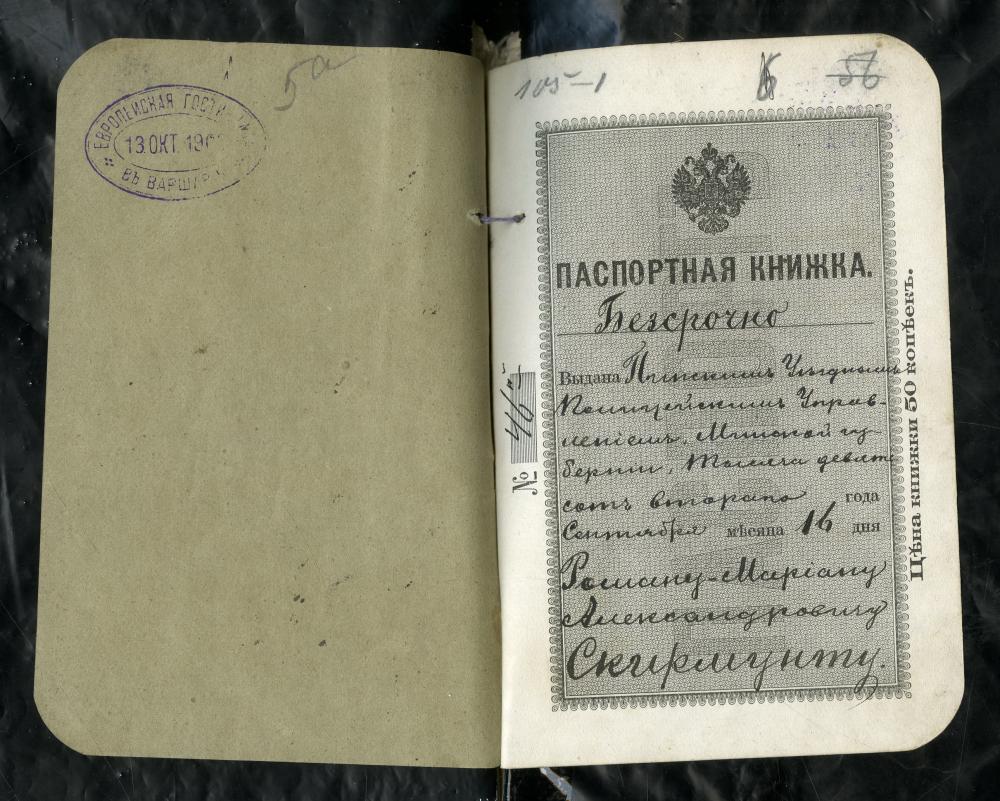 5а
ЕВРОПЕЙСКАЯ
13 ОКТ. 19
ВЪ
105-1
56
ПАСПОРТНАЯ КНИЖКА.
Безсрочно
Выдана Пинскимъ Уѣзднымъ
Полицейскимъ Управ-
леніемъ, Минской гу-
берніи, Тысяча девять
сотъ второго года
Сентября мѣсяца 16 дня
Роману-Маріану
Александровичу
Скирмунту.
№ 46
Цѣна книжки 50 копѣекъ.